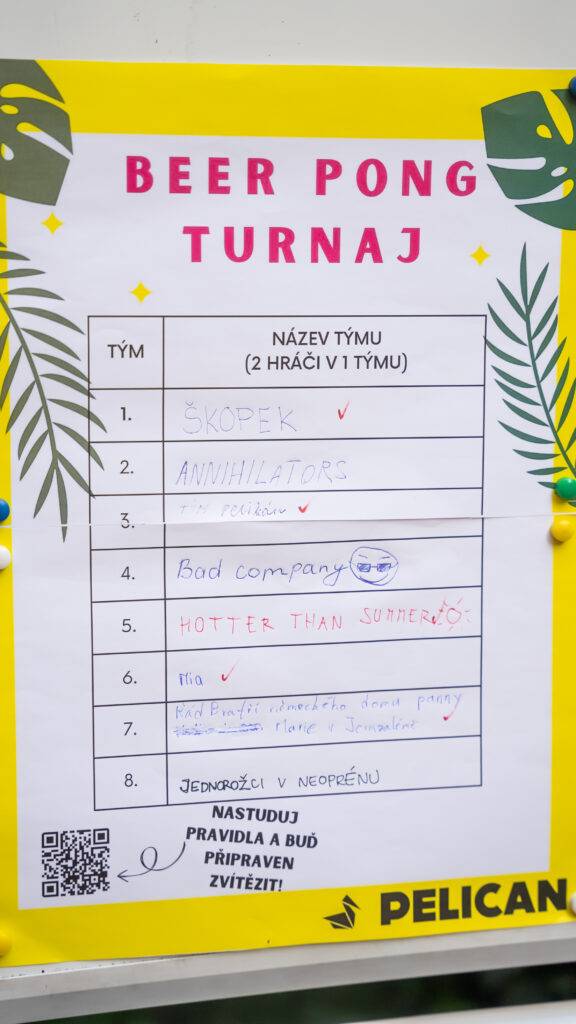 BEER PONG
TURNAJ
TÝM
NÁZEV TÝMU
(2 HRÁČI V 1 TÝMU)
1. ŠKOPEK
2. ANNIHILATORS
3. TÝM pelikán
4. Bad company
5. HOTTER THAN SUMMER
6. Mia
7. Řád Bratří německého domu panny
Marie v Jeruzalémě
8. JEDNOROŽCI V NEOPRÉNU
NASTUDUJ
PRAVIDLA A BUĎ
PŘIPRAVEN
ZVÍTĚZIT!
PELICAN